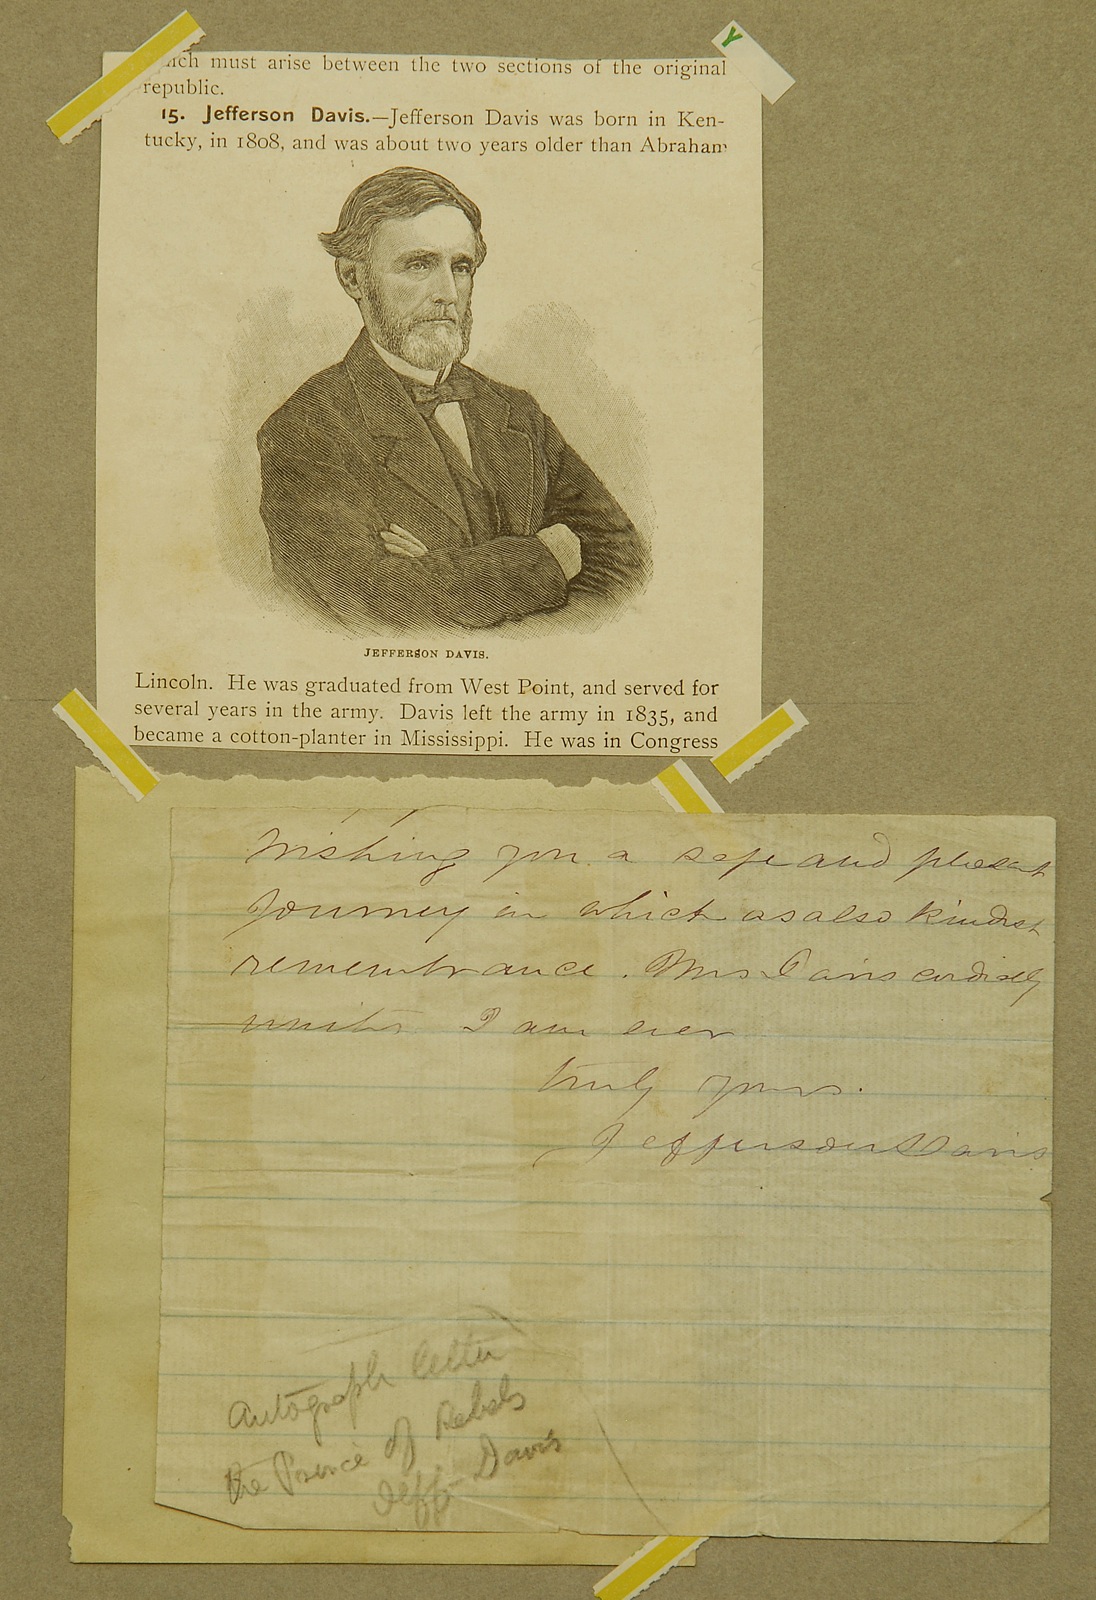 which must arise between the two sections of the original
republic.
15. Jefferson Davis.—Jefferson Davis was born in Ken-
tucky, in 1808, and was about two years older than Abraham
JEFFERSON DAVIS.
Lincoln. He was graduated from West Point, and served for
several years in the army. Davis left the army in 1835, and
became a cotton-planter in Mississippi. He was in Congress
Y
Wishing you a safe and pleasant
Journey in which as also kindest
remembrance. Mrs Davis cordially
unites I am ever
truly yours.
Jefferson Davis
Autograph letter
the Prince of Rebels
Jeff. Davis